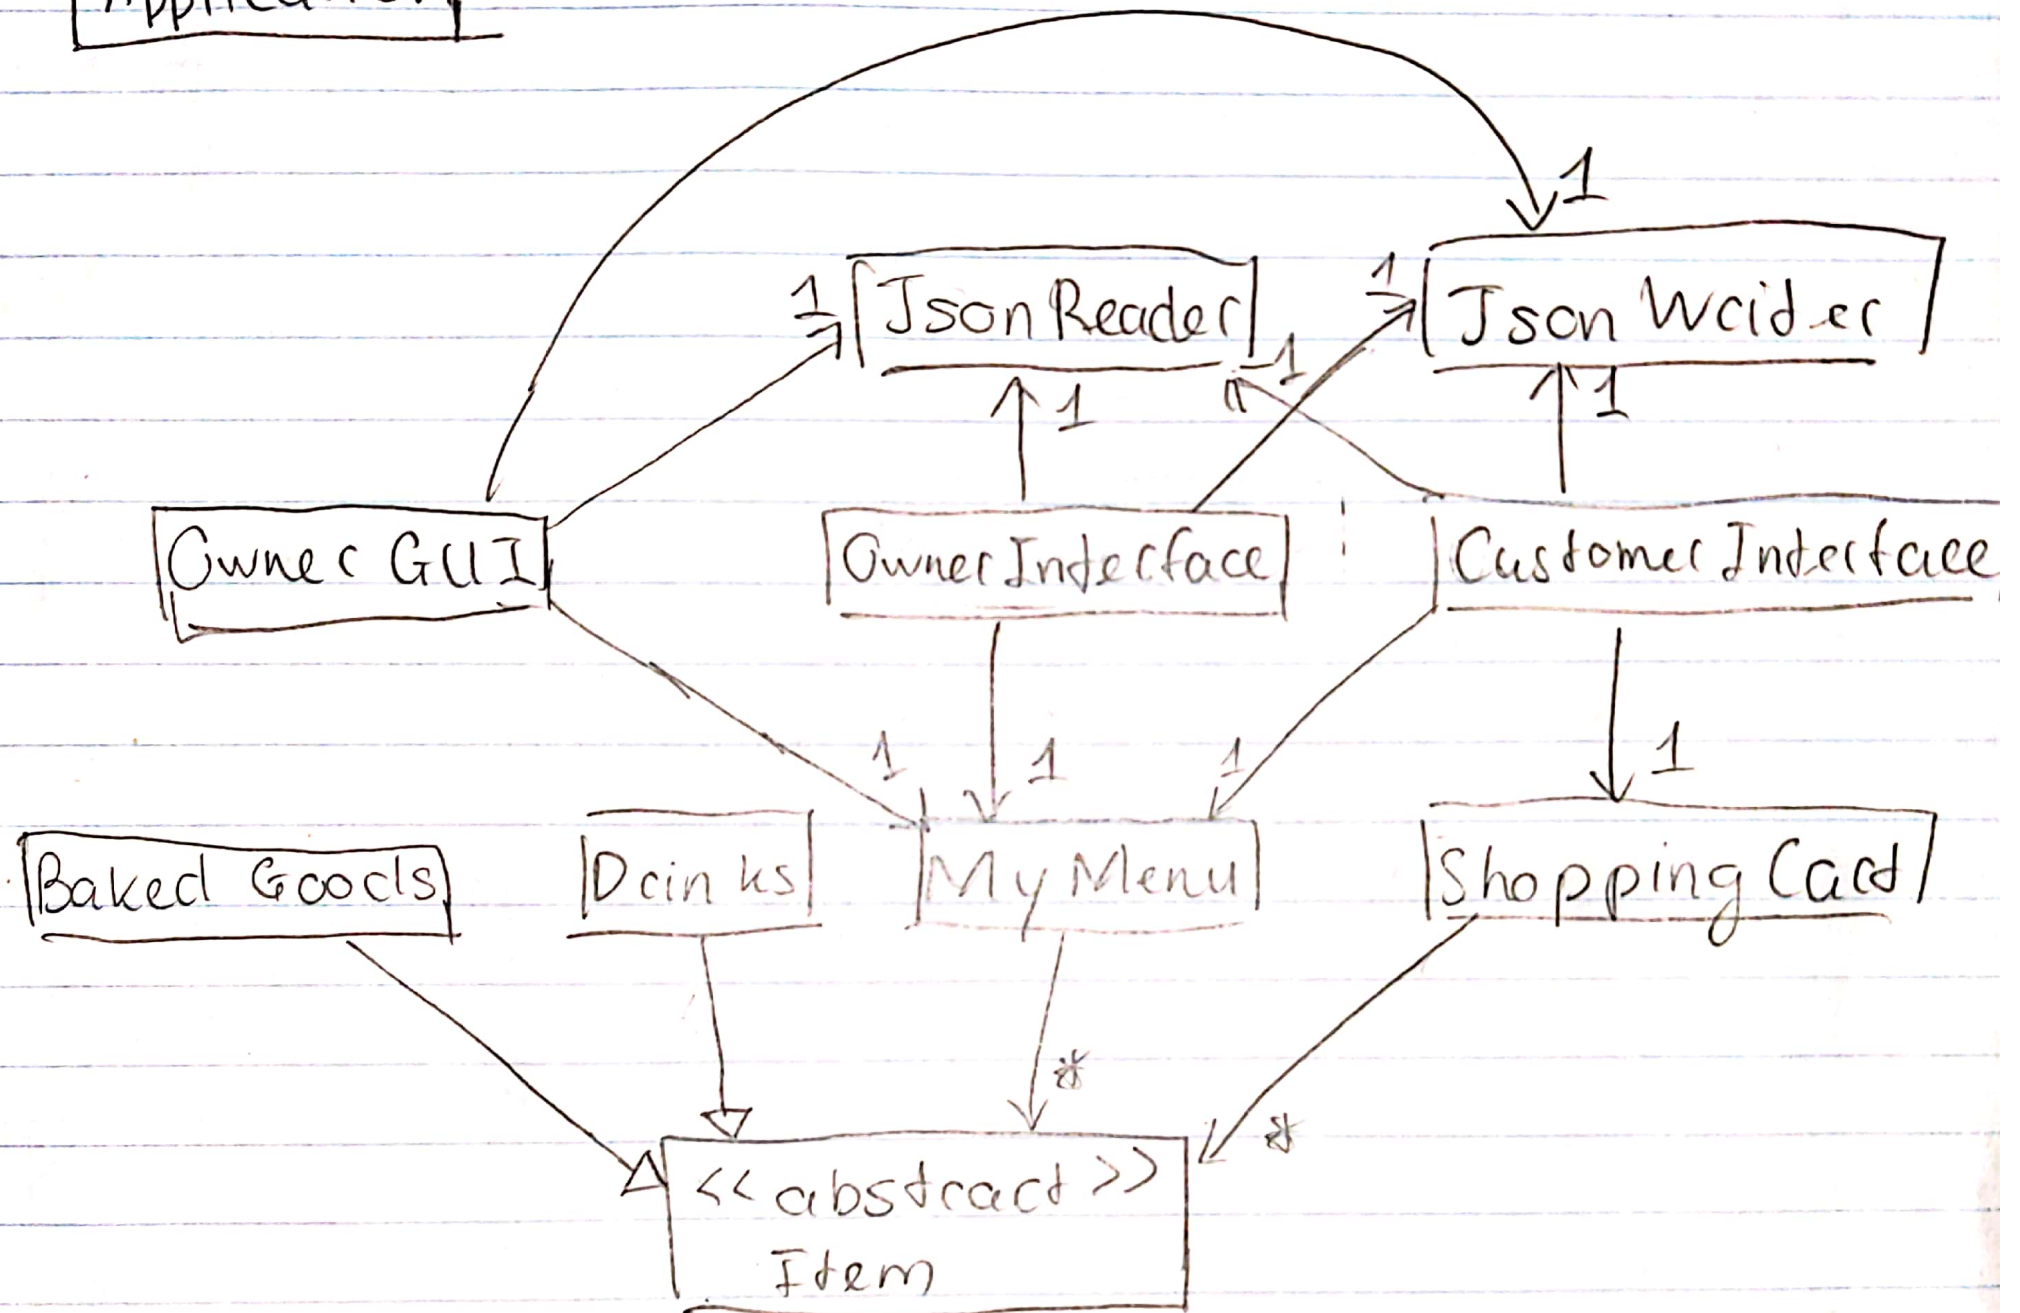 Application
1
1 JsonReader 1 Json Writer
1
1 1
Owner GUI OwnerInterface CustomerInterface
1 1 1 1
Baked Goods Drinks MyMenu Shopping Cart
*
*
<<abstract>>
Item